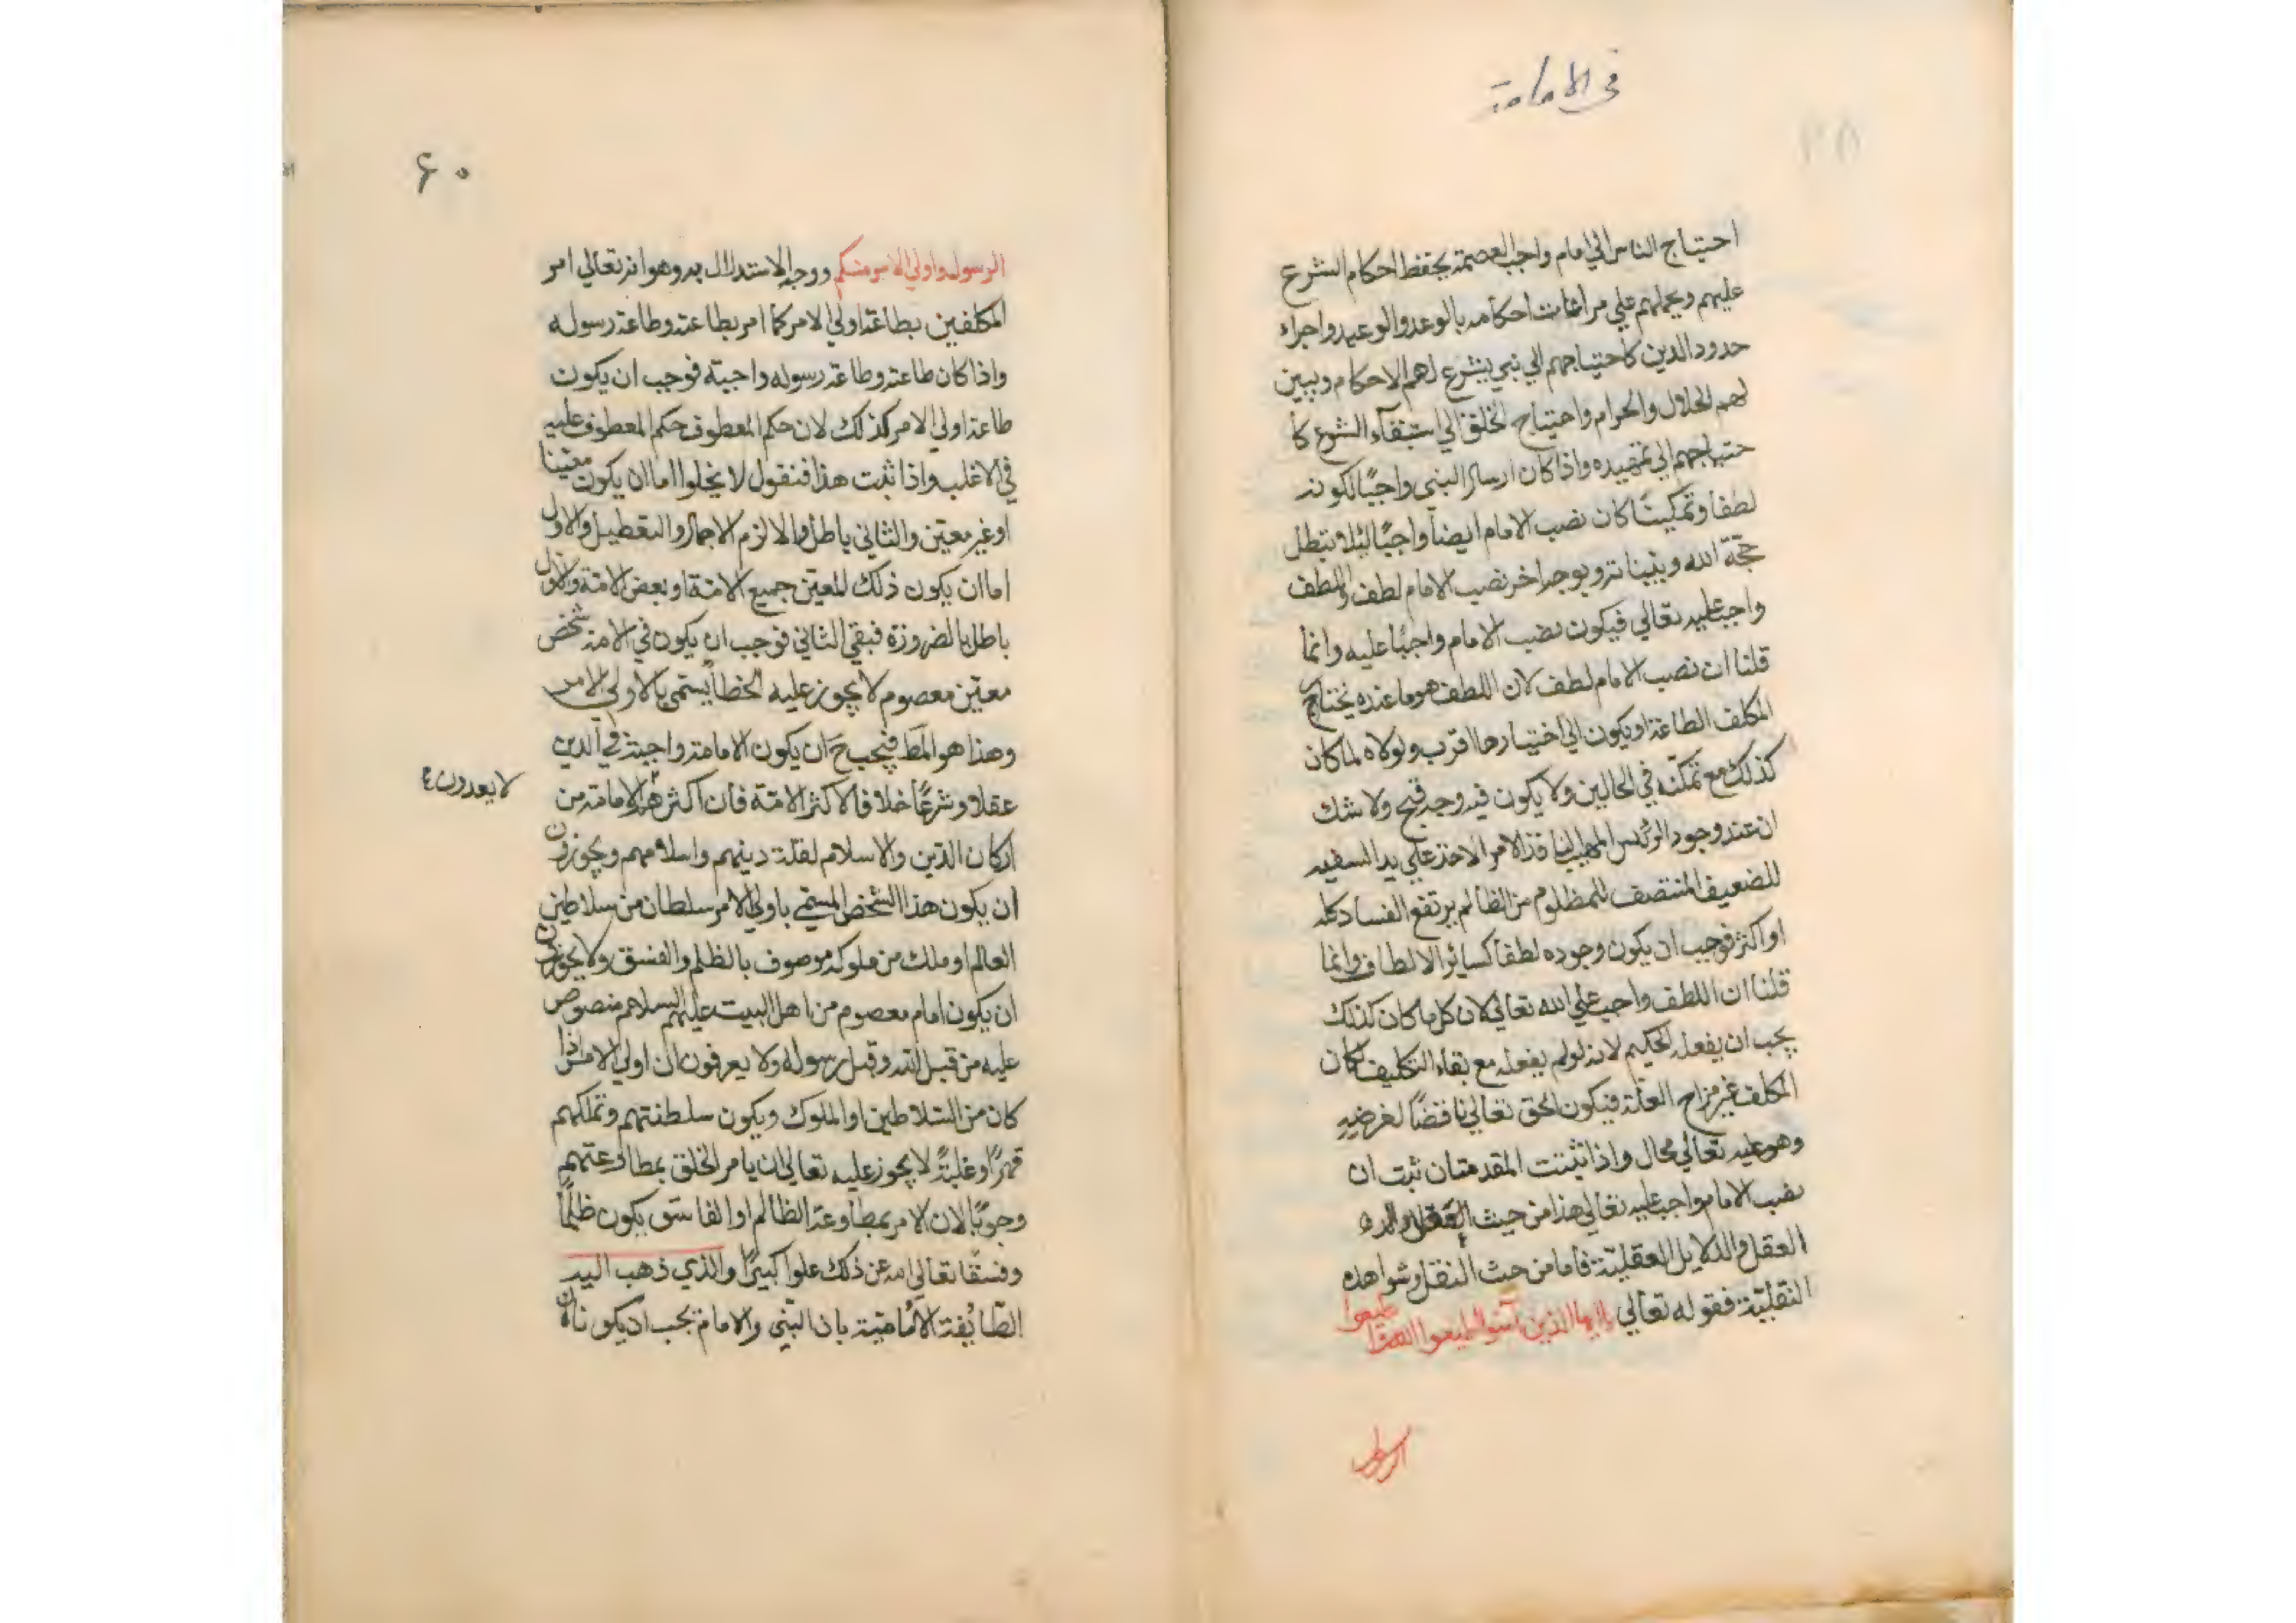 في الامامة
احتياج الناس الي امام واجب العصمة يحفظ احكام الشرع
عليهم ويحملهم علي مراعات احكامه بالوعد والوعيد واجراء
حدود الدين كاحتياجهم الي نبي يشرع لهم الاحكام ويبين
لهم الحلال والحرام واحتياج الخلق الي استبقآء الشرع كا
حتياجهم الي تمهيده واذا كان ارسال النبي واجبًا لكونه
لطفا وتمكينًا كان نصب الامام ايضا واجبًا لئلا يتبطل
حجّة الله وبيناته وبوجه اخر نصب الامام لطف واللطف
واجب عليه تعالي فيكون نصب الامام واجبًا عليه وانما
قلنا ان نصب الامام لطف لان اللطف هو ما عنده يختار
المكلف الطاعة او يكون الي اختيارها اقرب ولولاه لما كان
كذلك مع تمكنه في الحالين ولا يكون فيه وجه قبح ولا شك
ان عند وجود الرئيس المهيب النافذ الامر الاخذ علي يد السفيه
للضعيف المنتصف للمظلوم من الظالم يرتفع الفساد كله
او اكثره فوجب ان يكون وجوده لطفا كسائر الالطاف وانما
قلنا ان اللطف واجب علي الله تعالي لان كل ما كان كذلك
يجب ان يفعله الحكيم لانه لو لم يفعله مع بقاء التكليف لكان
المكلف غير مزاح العلة فيكون الحق تعالي ناقضًا لغرضه
وهو عليه تعالي محال واذا ثبتت المقدمتان ثبت ان
نصب الامام واجب عليه تعالي هذا من حيث
العقل والدلايل العقليّة فاما من حيث النقل وشواهده
النقليّة فقوله تعالي يا ايها الذين آمنوا اطيعوا الله واطيعوا
الرسول
۶۰
الرسول واولي الامر منكم ووجه الاستدلال به وهو انه تعالي امر
المكلفين بطاعة اولي الامر كما امر بطاعته وطاعة رسوله
واذا كان طاعته وطاعة رسوله واجبة فوجب ان يكون
طاعة اولي الامر كذلك لان حكم المعطوف حكم المعطوف عليه
في الاغلب واذا ثبت هذا فنقول لا يخلوا اما ان يكون معيّنا
او غير معيّن والثاني باطل والا لزم الاجمال والتعطيل والاول
اما ان يكون ذلك المعيّن جميع الامّة او بعض الامّة والاول
باطل بالضرورة فبقي الثاني فوجب ان يكون في الامة شخص
معيّن معصوم لا يجوز عليه الخطأ يسمّي بالاولي الامر
وهذا هو المط فيجب ح ان يكون الامامة واجبة في الدين
عقلا وشرعًا خلافا لاكثر الامّة فان اكثرهم الامامة من
لا يعدون
اركان الدّين والاسلام لقلة دينهم واسلامهم ويجوزون
ان يكون هذا الشخص المسمّي باولي الامر سلطان من سلاطين
العالم او ملك من ملوكه موصوف بالظلم والفسق ولا يجوزون
ان يكون امام معصوم من اهل البيت عليهم السلام منصوص
عليه من قبل الله وقبل رسوله ولا يعرفون ان اولي الامر اذا
كان من السّلاطين او الملوك ويكون سلطنتهم وتملكهم
قهرًا وغلبةً لا يجوز عليه تعالي ان يامر الخلق بمطاوعتهم
وجوبًا لان الامر بمطاوعة الظالم او الفاسق يكون ظلمًا
وفسقًا تعالي الله عن ذلك علوا كبيرًا والذي ذهب اليه
الطّائفة الاماميّة بان النّبي والامام يجب ان يكونا